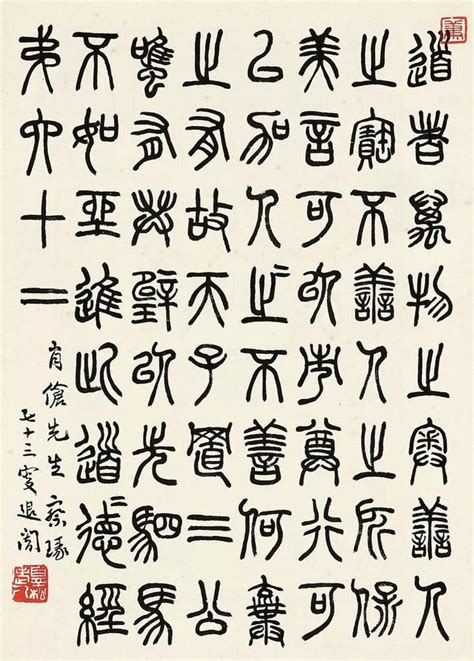 道者萬物之奧善人
之寶不善人之所保
美言可以市尊行可
以加人之不善何棄
之有故天子置三公
雖有共璧以先駟馬
不如坐進此道德經
弟六十二
肖傖先生察瑑
七十三叟退闇